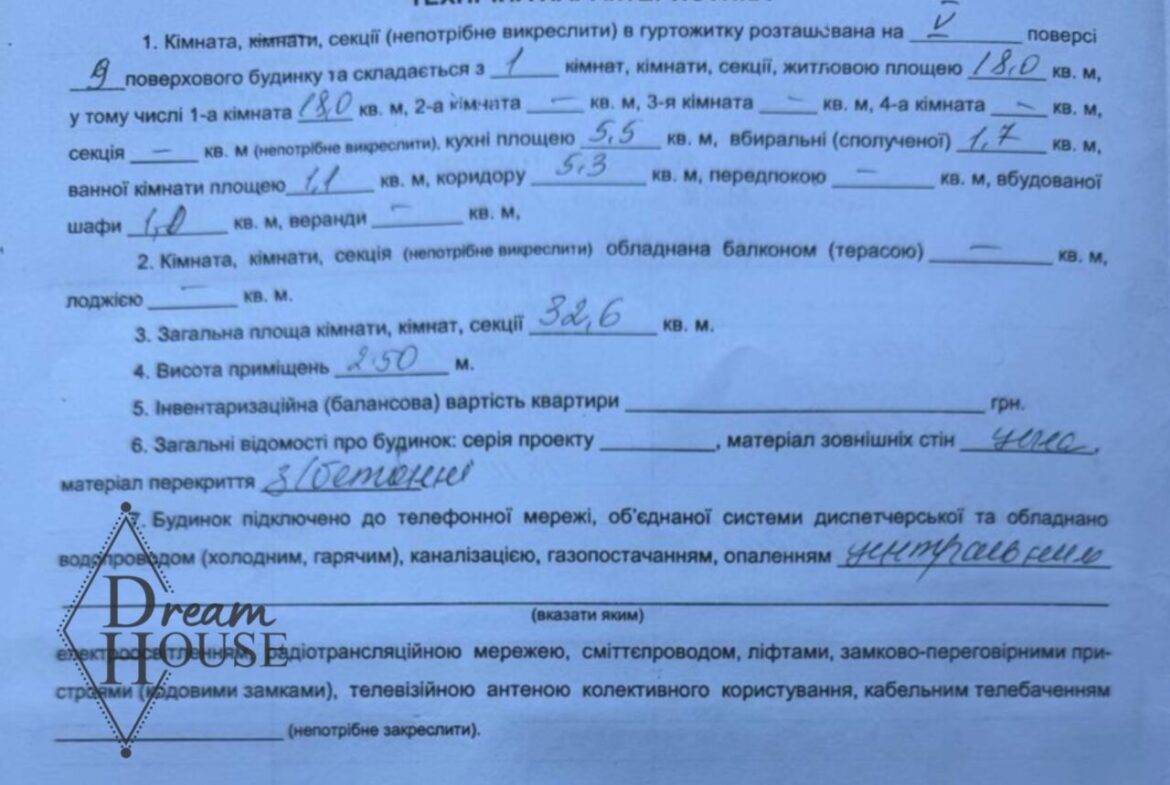 1. Кімната, кімнати, секції (непотрібне викреслити) в гуртожитку розташована на V поверсі
9 поверхового будинку та складається з 1 кімнат, кімнати, секції, житловою площею 18,0 кв. м,
у тому числі 1-а кімната 18,0 кв. м, 2-а кімната — кв. м, 3-я кімната — кв. м, 4-а кімната — кв. м,
секція — кв. м (непотрібне викреслити), кухні площею 5,5 кв. м, вбиральні (сполученої) 1,7 кв. м,
ванної кімнати площею 1,1 кв. м, коридору 5,3 кв. м, передпокою — кв. м, вбудованої
шафи 1,0 кв. м, веранди — кв. м,
2. Кімната, кімнати, секція (непотрібне викреслити) обладнана балконом (терасою) — кв. м,
лоджією — кв. м.
3. Загальна площа кімнати, кімнат, секції 32,6 кв. м.
4. Висота приміщень 2.50 м.
5. Інвентаризаційна (балансова) вартість квартири грн.
6. Загальні відомості про будинок: серія проекту , матеріал зовнішніх стін
матеріал перекриття з/бетонні
7. Будинок підключено до телефонної мережі, об'єднаної системи диспетчерської та обладнано
водопроводом (холодним, гарячим), каналізацією, газопостачанням, опаленням центральним
(вказати яким)
електроосвітленням, радіотрансляційною мережею, сміттєпроводом, ліфтами, замково-переговірними при-
строями (кодовими замками), телевізійною антеною колективного користування, кабельним телебаченням
(непотрібне закреслити).
Dream
HOUSE